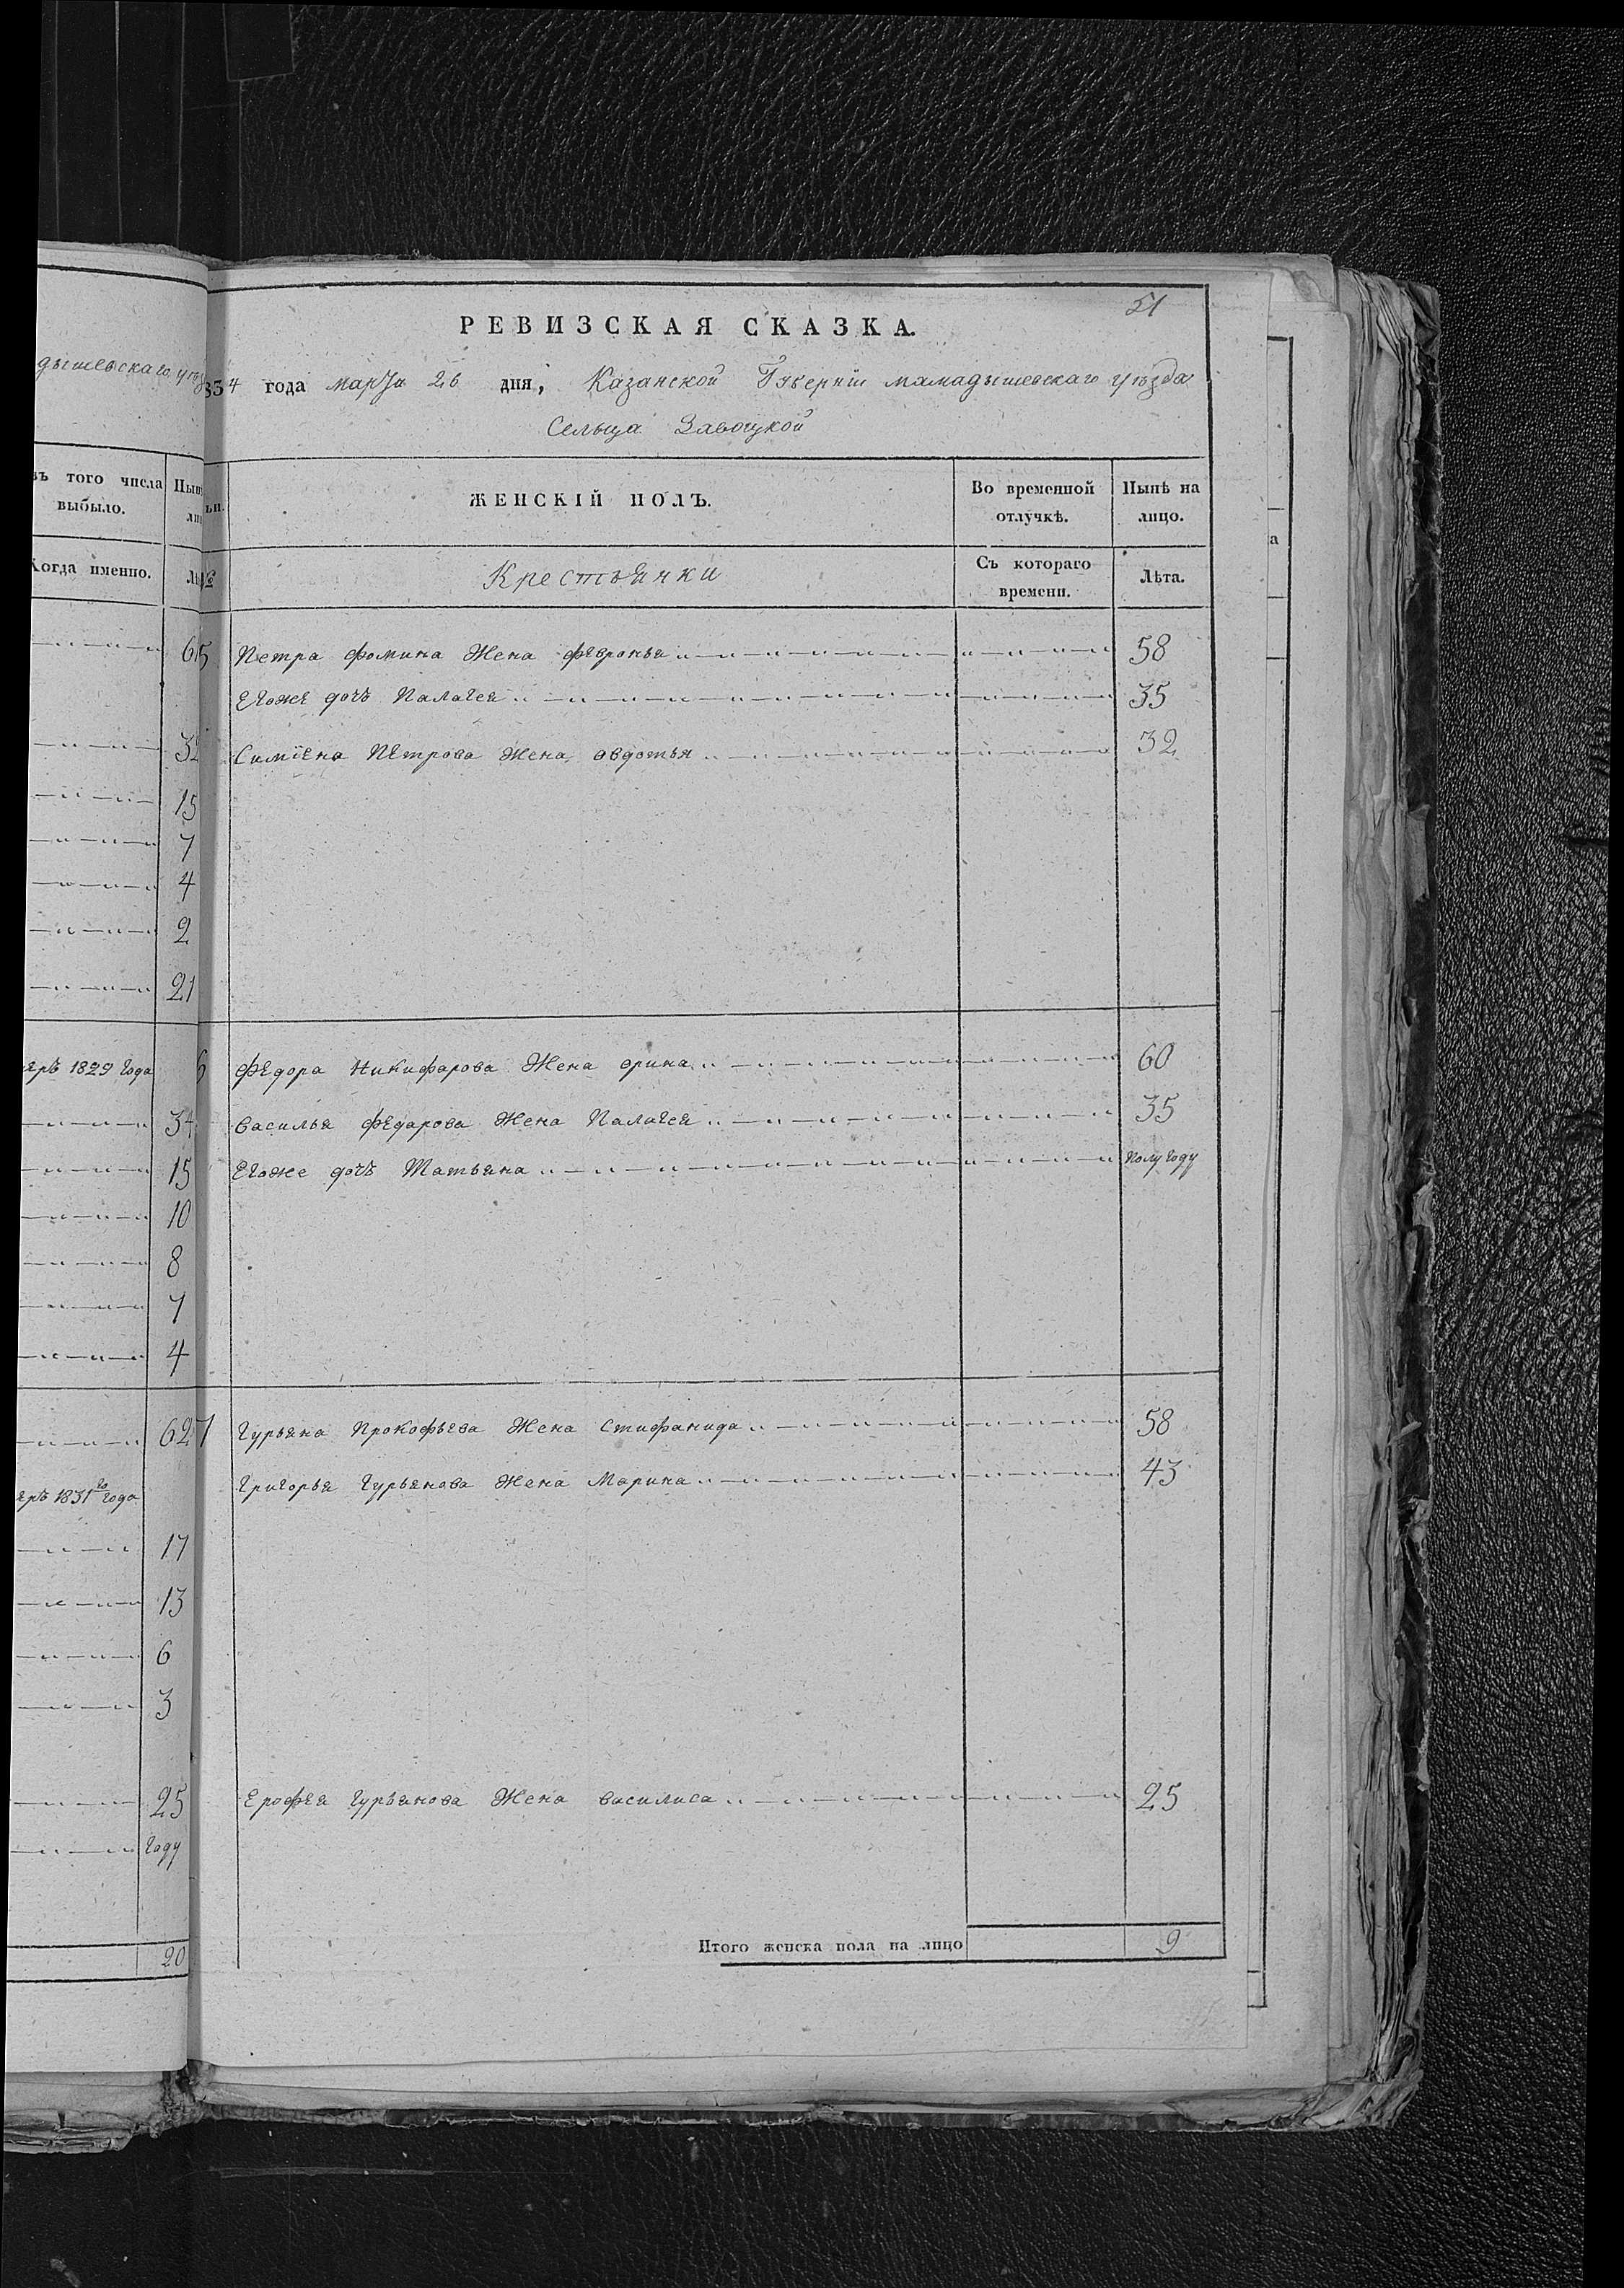 51
РЕВИЗСКАЯ СКАЗКА.
дышевскаго уѣз
834 года марта 26 дня, Казанской Губерніи мамадышевскаго уѣзда
Сельца Завоцкой
ъ того числа выбыло.
Когда именно.
№
ЖЕНСКІЙ ПОЛЪ.
Во временной отлучкѣ.
Нынѣ на лицо.
Крестьянки
Съ котораго времени.
Лѣта.
5 Петра фомина Жена февронья 58
Егоже дочь Палагея 35
Симіена Петрова Жена авдотья 32
6 Федора Никифарова Жена орина 60
Василья Федарова Жена Палагея 35
Егоже дочь Татьяна полугоду
7 Гурьяна Прокофьева Жена Стифанида 58
Григорья Гурьянова Жена Марина 43
Ерофея Гурьянова Жена василиса 25
Итого женска пола на лицо 9
6
3
15
7
4
2
21
ярѣ 1829 года
34
15
10
8
7
4
62
ярѣ 1831го года
17
13
6
3
25
году
20
а